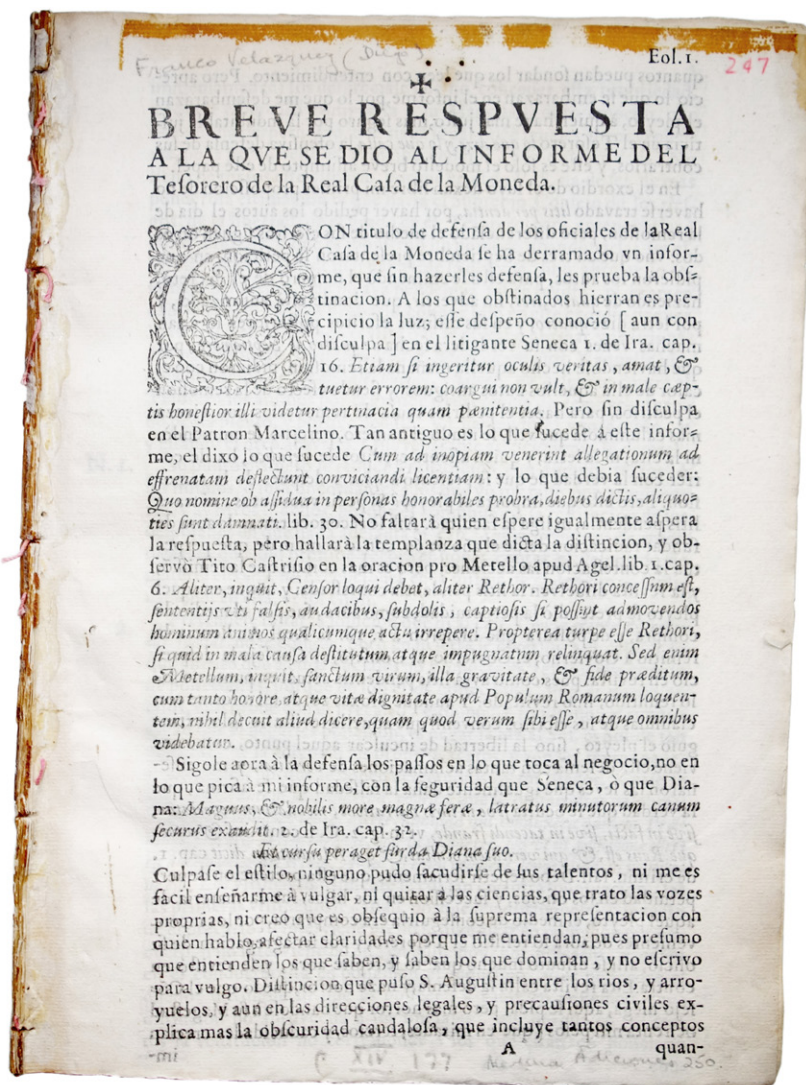 Franco Velazquez (Diego)
Eol.1.
247
BREVE RESPVESTA
A LA QVE SE DIO AL INFORME DEL
Teſorero de la Real Caſa de la Moneda.
CON titulo de defenſa de los oficiales de la Real
Caſa de la Moneda ſe ha derramado vn infor-
me, que ſin hazerles defenſa, les prueba la obſ-
tinacion. A los que obſtinados hierran es pre-
cipicio la luz; eſſe deſpeño conoció [ aun con
diſculpa ] en el litigante Seneca 1. de Ira. cap.
16. Etiam ſi ingeritur oculis veritas, amat, &
tuetur errorem: coargui non vult, & in male cæp-
tis honeſtior illi videtur pertinacia quam pænitentia. Pero ſin diſculpa
en el Patron Marcelino. Tan antiguo es lo que ſucede á eſte infor-
me, el dixo lo que ſucede Cum ad inopiam venerint allegationum ad
effrenatam deflectunt conviciandi licentiam: y lo que debia ſuceder:
Quo nomine ob aſſidua in perſonas honorabiles probra, diebus dictis, aliquo-
ties ſunt damnati. lib. 30. No faltarà quien eſpere igualmente aſpera
la reſpueſta, pero hallarà la templanza que dicta la diſtincion, y ob-
ſervò Tito Caſtriſio en la oracion pro Metello apud Agel. lib. 1. cap.
6. Aliter, inquit, Cenſor loqui debet, aliter Rethor. Rethori conceſſum eſt,
ſententijs vti falſis, audacibus, ſubdolis, captioſis ſi poſſint admovendos
hominum animos qualicumque actu irrepere. Propterea turpe eſſe Rethori,
ſi quid in mala cauſa deſtitutum atque impugnatnm relinquat. Sed enim
Metellum, inquit, ſanctum virum, illa gravitate, & fide præditum,
cum tanto honore atque vitæ dignitate apud Populum Romanum loquen-
tem, nihil decuit aliud dicere, quam quod verum ſibi eſſe, atque omnibus
videbatur.
Sigole aora à la defenſa los paſſos en lo que toca al negocio, no en
lo que pica à mi informe, con la ſeguridad que Seneca, ò que Dia-
na: Magnus, & nobilis more magnæ feræ, latratus minutorum canum
ſecurus exaudit. 2. de Ira. cap. 32.
Et curſu peraget ſurda Diana ſuo.
Culpaſe el eſtilo, ninguno pudo ſacudirſe de ſus talentos, ni me es
facil enſeñarme à vulgar, ni quitar à las ciencias, que trato las vozes
proprias, ni creo que es obſequio à la ſuprema repreſentacion con
quien hablo, afectar claridades porque me entiendan, pues preſumo
que entienden los que ſaben, y ſaben los que dominan, y no eſcrivo
para vulgo. Diſtincion que puſo S. Auguſtin entre los rios, y arro-
yuelos, y aun en las direcciones legales, y precauſiones civiles ex-
plica mas la obſcuridad caudaloſa, que incluye tantos conceptos
A quan-
XIV 177 Medina Adiciones 250.